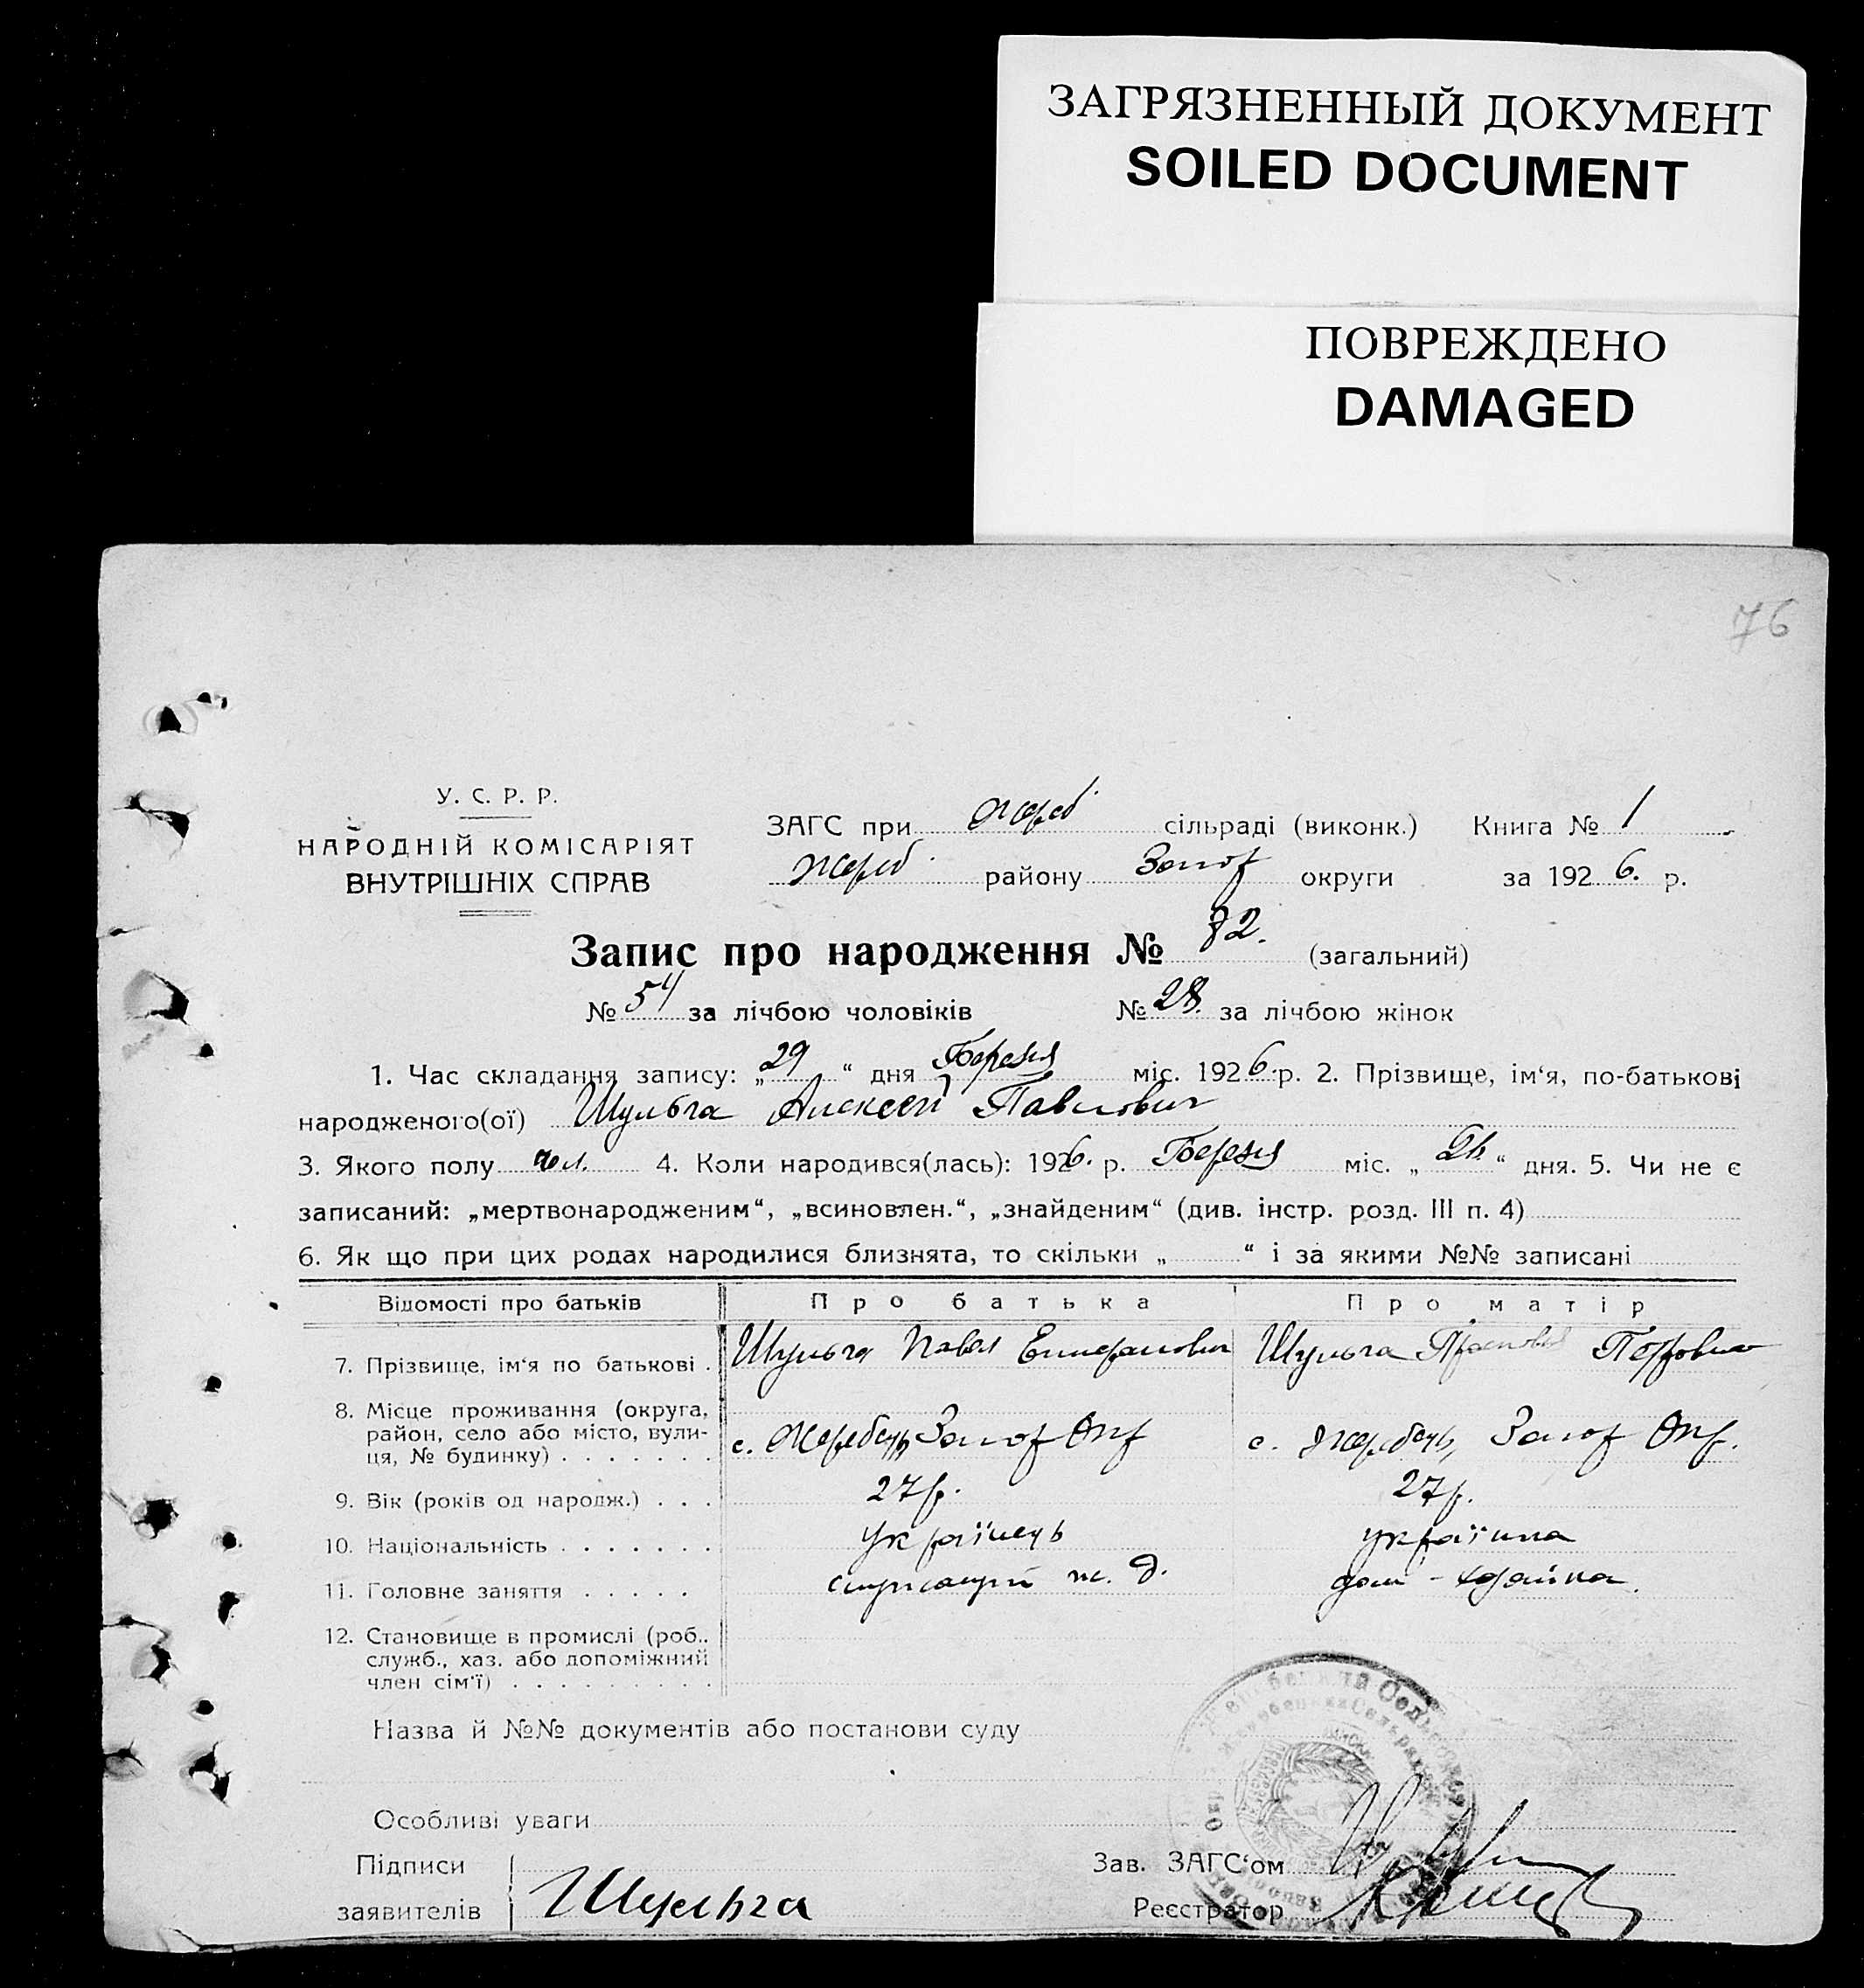 ЗАГРЯЗНЕННЫЙ ДОКУМЕНТ
SOILED DOCUMENT
ПОВРЕЖДЕНО
DAMAGED
76
У. С. Р. Р.
НАРОДНІЙ КОМІСАРІЯТ
ВНУТРІШНІХ СПРАВ
ЗАГС при Жереб. сільраді (виконк.) Книга № 1
Жереб. району Запор округи за 1926. р.
Запис про народження № 82. (загальний)
№ 54 за лічбою чоловіків № 28. за лічбою жінок
1. Час складання запису: „29“ дня Березня міс. 1926 р. 2. Прізвище, ім‘я, по-батькові
народженого(ої) Шульга Алексей Павлович
3. Якого полу чол. 4. Коли народився(лась): 1926. р. Березня міс. „ “ дня. 5. Чи не є
записаний: „мертвонародженим“, „всиновлен.“, „знайденим“ (див. інстр. розд. III п. 4)
6. Як що при цих родах народилися близнята, то скільки „ “ і за якими №№ записані
Відомості про батьків Про батька Про матір
7. Прізвище, ім‘я по батькові . Шульга Павел Епифанович Шульга
8. Місце проживання (округа, район, село або місто, вули-
ця, № будинку) . . . . . . . с. Жеребець, Запор Окр с. Жеребець, Запор Окр.
9. Вік (років од народж.) . . . 27 р. 27 р.
10. Національність . . . . . . . українець українка
11. Головне заняття . . . . . служащий ж. д. дом-хазяйка.
12. Становище в промислі (роб..
служб., хаз. або допоміжний
член сім‘ї) . . . . . . . . .
Назва й №№ документів або постанови суду
Особливі уваги
Підписи
заявителів Шульга
Зав. ЗАГС‘ом
Реєстратор